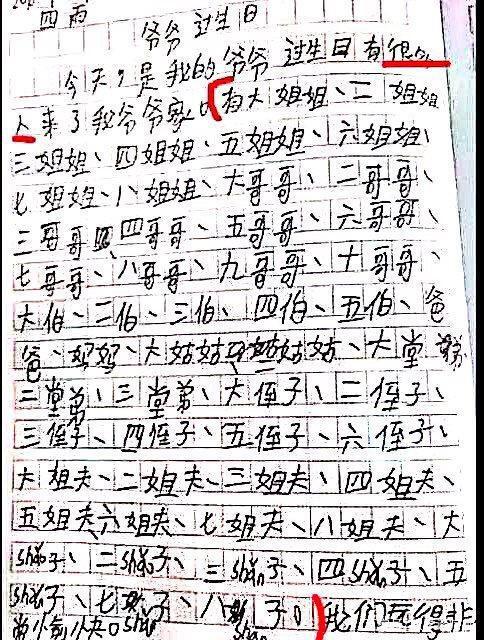 四 雨
爷爷过生日
今天,是我的爷爷过生日有很多
人来了我爷爷家。有大姐姐、二姐姐
三姐姐、四姐姐、五姐姐、六姐姐、
七姐姐、八姐姐、大哥哥、二哥哥、
三哥哥、四哥哥、五哥哥、六哥哥、
七哥哥、八哥哥、九哥哥、十哥哥、
大伯、二伯、三伯、四伯、五伯、爸
爸、妈妈、大姑姑、二姑姑、大堂弟
二堂弟、三堂弟、大侄子、二侄子、
三侄子、四侄子、五侄子、六侄子、
大姐夫、二姐夫、三姐夫、四姐夫、
五姐夫、六姐夫、七姐夫、八姐夫、大
shǎo子、二shǎo子、三shǎo子、四shǎo子、五
shǎo子、七子、八子。我们玩得非
常愉快。